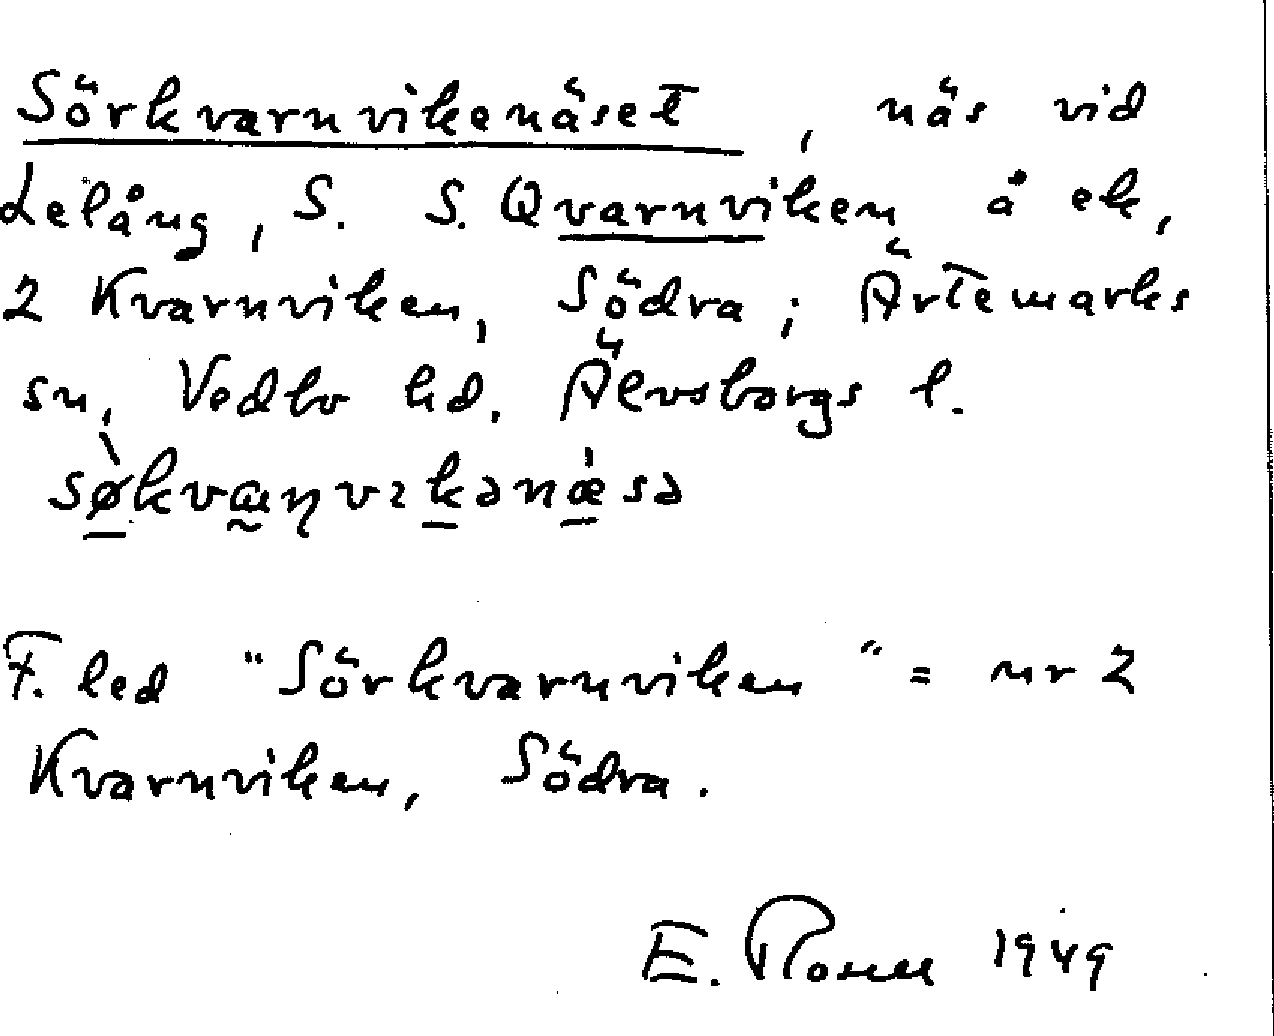 Sörkvarnvikenäset, näs vid
Lelång, S. S. Qvarnviken å ek,
2 Kvarnviken, Södra; Ärtemarks
sn, Vedbo hd. Älvsborgs l.
F. led "Sörkvarnviken" = nr 2
Kvarnviken, Södra.
E. 1949